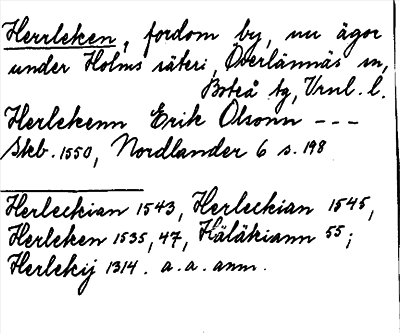 Herrleken, fordom by, nu ägor
under Holms säteri, Överlännäs sn,
Boteå tg, Vrnl. l.
Herlekenn Erik Olsonn ---
Skb. 1550, Nordlander 6 s. 198
Herleckian 1543, Herleckian 1545,
Herleken 1535, 47, Häläkiann 55;
Herlekij 1314. a. a. anm.